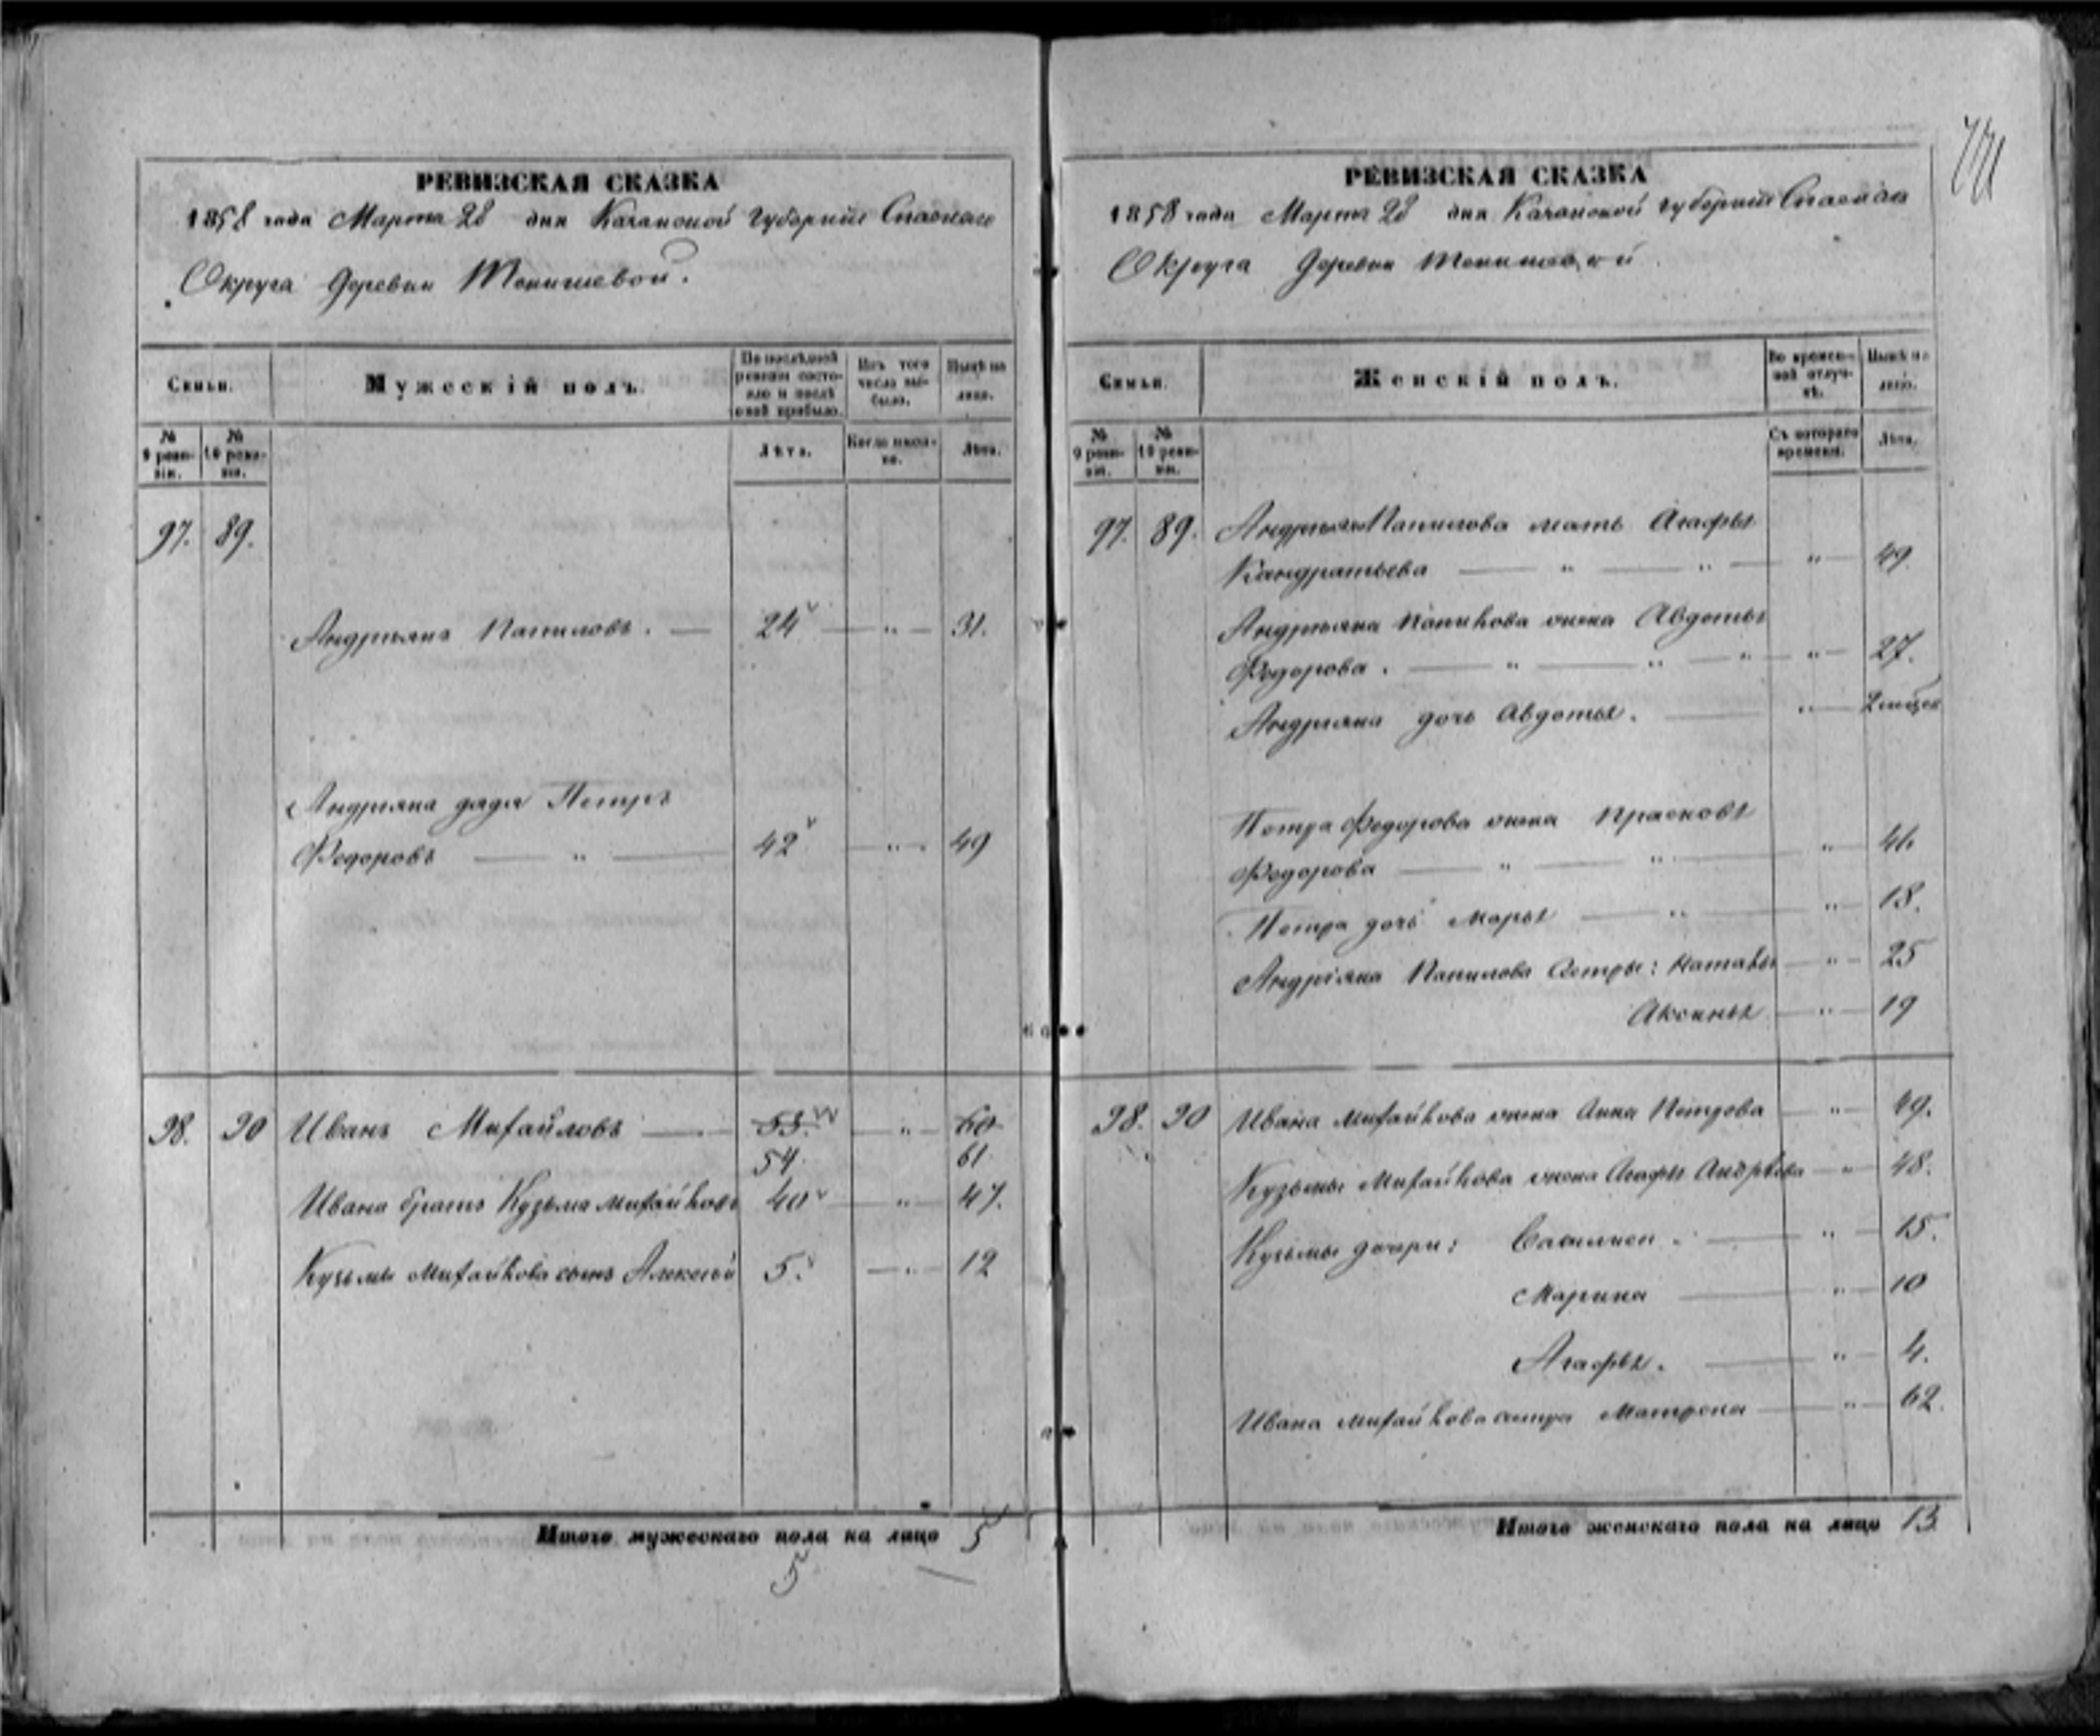 РЕВИЗСКАЯ СКАЗКА
1858 года Марта 28 дня Казанской губернии Спаскаго
Округа Деревни Тенишевой.
Семьи.
Мужескій полъ.
По послѣдней ревизіи состояло и послѣ оной прибыло.
Изъ того числа выбыло.
Нынѣ на лицо.
№ 9 ревизіи.
№ 10 ревизіи.
Лѣта.
Когда именно.
Лѣта.
97. 89.
Андріянъ Папиловъ. — 24 — „ — 31.
Андріяна дядя Петръ
Федоровъ — „ — 42 — „ — 49
98. 90 Иванъ Михайловъ — 53. — „ — 60
54. 61
Ивана братъ Кузьма Михайловъ 40 — „ — 47.
Кузьмы Михайлова сынъ Алексѣй 5. — „ — 12
Итого мужескаго пола на лицо 5
5
РЕВИЗСКАЯ СКАЗКА
1858 года Марта 28 дня Казанской губерніи Спаскаго
Округа Деревни Тенишевой.
Семьи.
Женскій полъ.
Во временной отлучкѣ.
Нынѣ на лицо.
№ 9 ревизіи.
№ 10 ревизіи.
Съ котораго времени.
Лѣта.
97. 89. Андріяна Папилова мать Агафья
Кандратьева — „ — „ — „ — 49.
Андріяна Папилова жена Авдотья
Федорова. — „ — „ — „ — „ — 27.
Андріяна дочь Авдотья. — „ — 2
Петра Федорова жена Прасковья
Федорова — „ — „ — „ — 46
Петра дочь Марья — „ — „ — 18.
Андріяна Папилова сестры: Наталья — „ — 25
Аксинья — „ — 19
98. 90 Ивана Михайлова жена Анна Петрова — „ — 49.
Кузьмы Михайлова жена Агафья Андрѣева — „ — 48.
Кузьмы дочери: Василиса — „ — 15.
Марина — „ — 10
Агафья. — „ — 4.
Ивана Михайлова сестра Матрена — „ — 62.
Итого женскаго пола на лицо 13